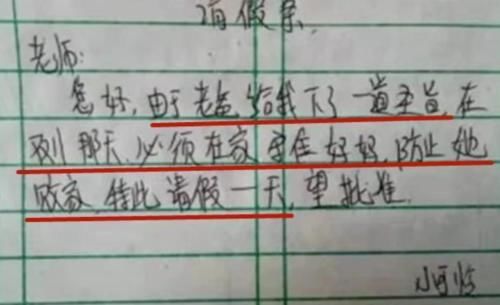 请假条
老师:
您好,由于老爸给我下了一道圣旨,在
双11那天,必须在家守住妈妈,防止她
败家,特此请假一天,望批准.
小可怜